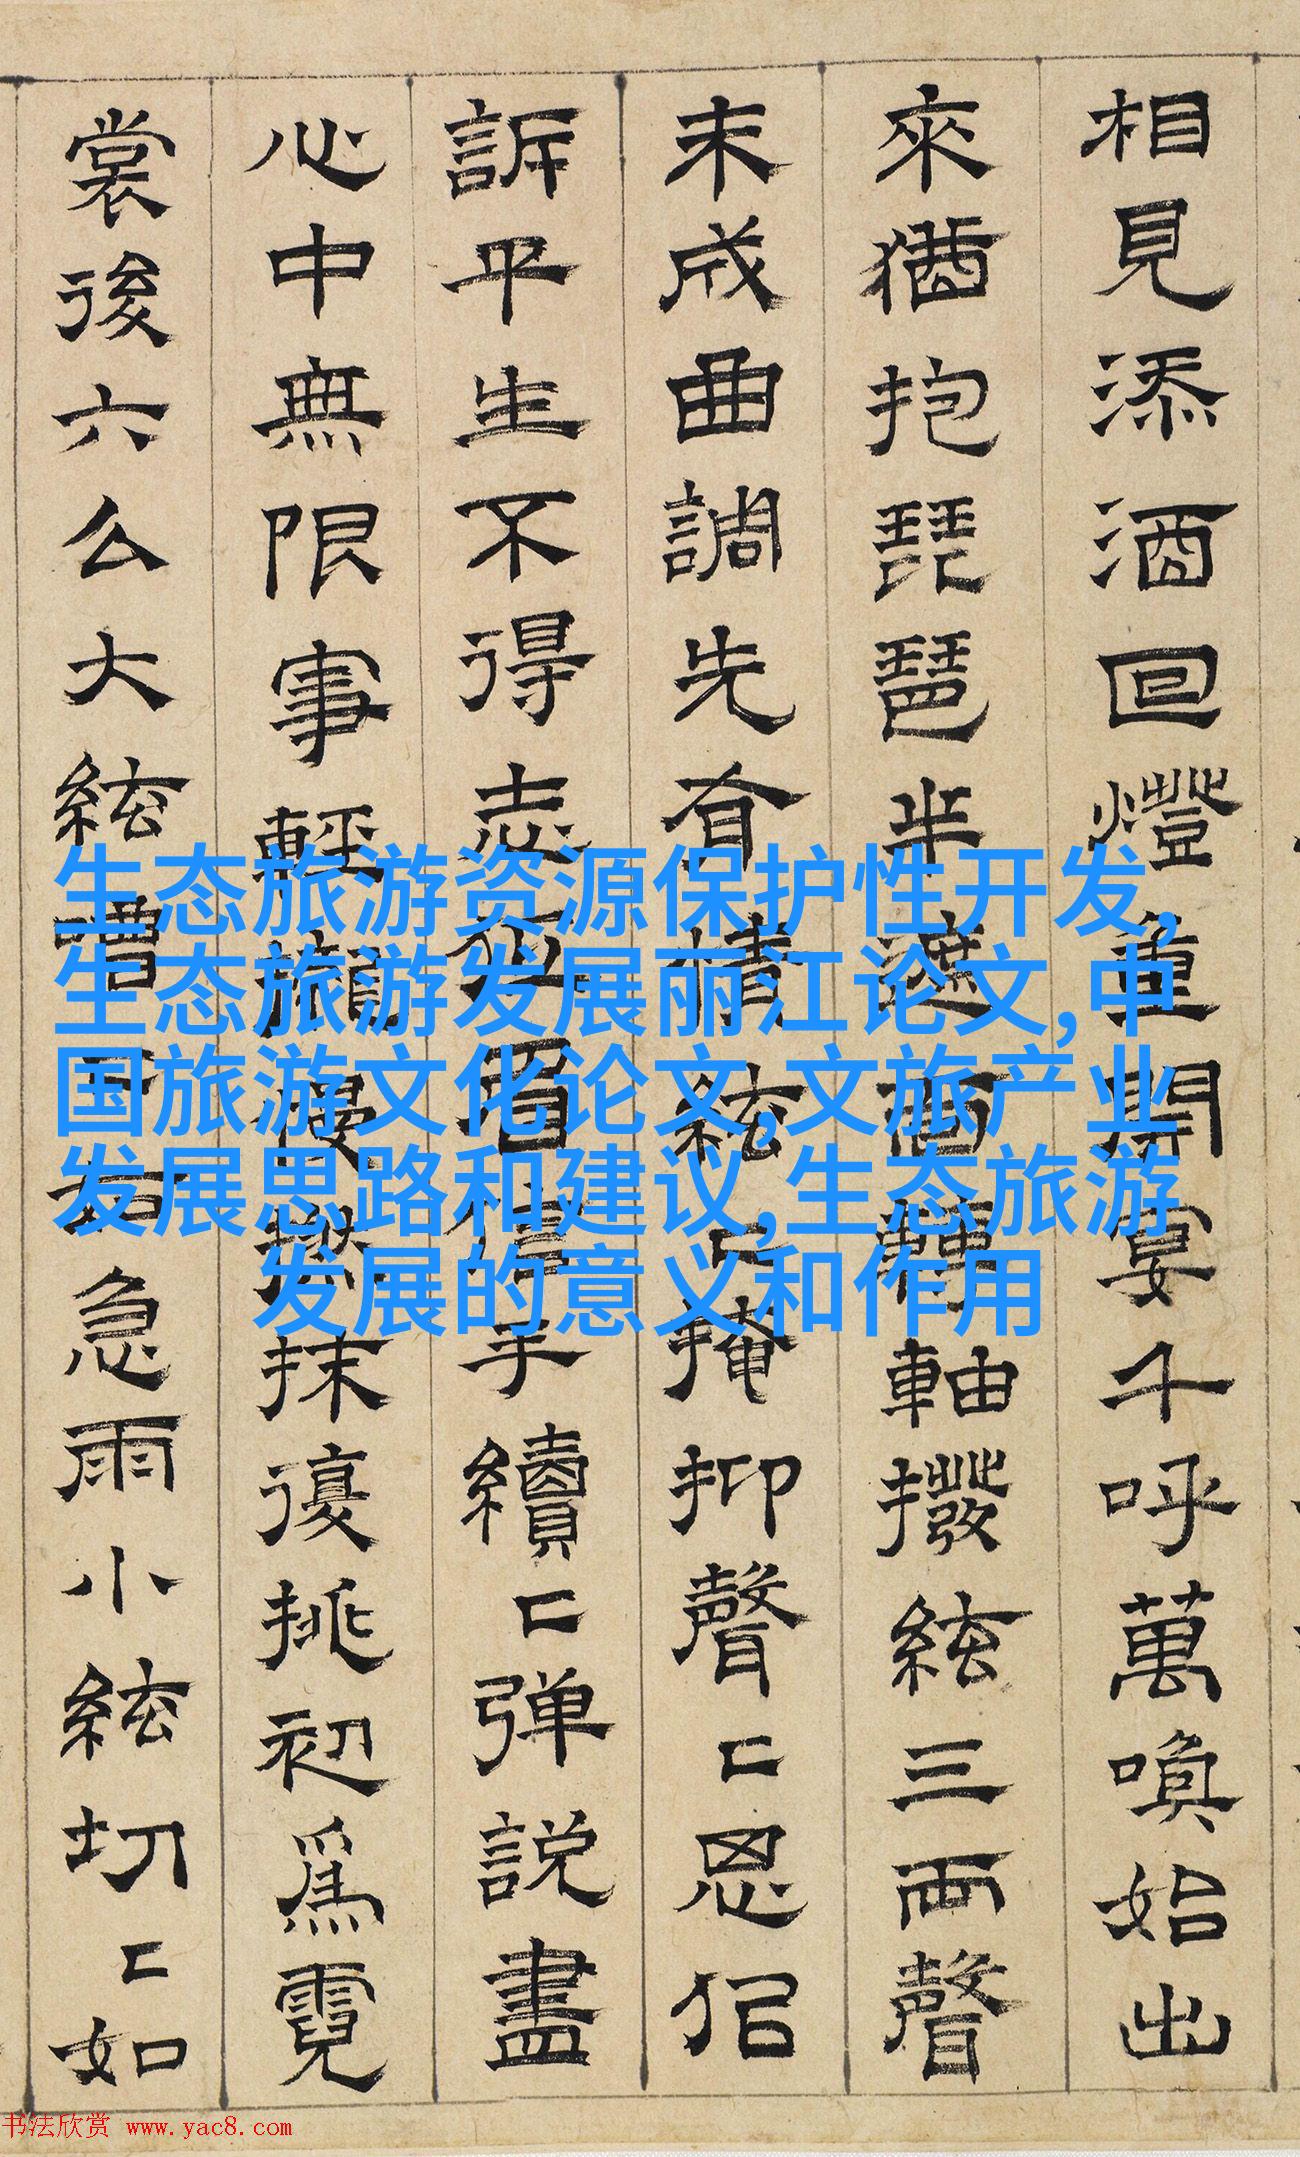 相見添酒回燈重開宴千呼萬喚始出
來猶抱琵琶半遮面轉軸撥絃三兩聲
未成曲調先有情絃〻掩抑聲〻思似
訴平生不得志低眉信手續〻弹説盡
心中無限事輕攏慢撚抹復挑初爲霓
裳後六么大絃嘈〻如急雨小絃切〻如
生态旅游资源保护性开发,
生态旅游发展丽江论文,中
国旅游文化论文,文旅产业
发展思路和建议,生态旅游
发展的意义和作用
书法欣赏 www.yac8.com